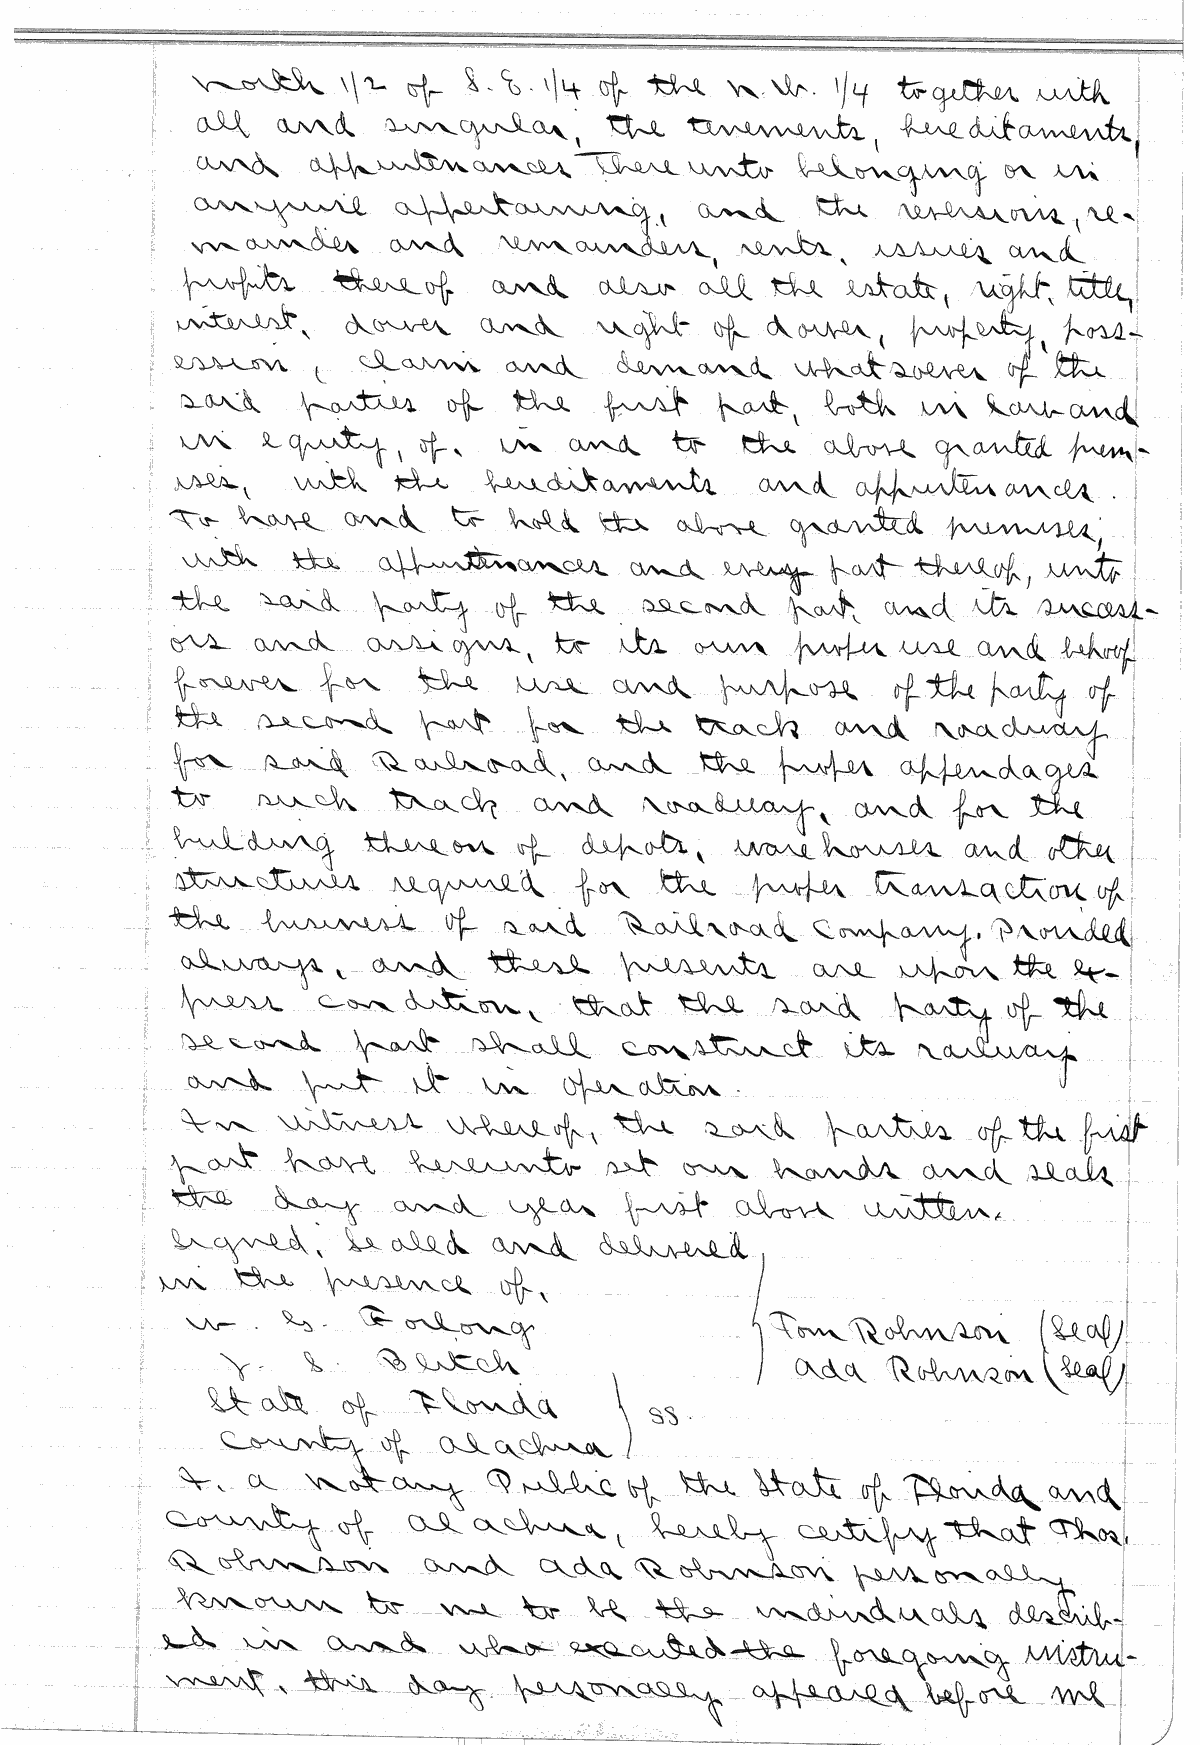 North 1/2 of S.E. 1/4 of the N.W. 1/4 together with
all and singular, the tenements, hereditaments,
and appurtenances thereunto belonging or in
anywise appertaining, and the reversions, re-
mainder and remainders, rents, issues and
profits thereof and also all the estate, right, title,
interest, dower and right of dower, property, poss-
ession, claim and demand whatsoever of the
said parties of the first part, both in law and
in equity, of, in and to the above granted prem-
ises, with the hereditaments and appurtenances.
To have and to hold the above granted premises,
with the appurtenances and every part thereof, unto
the said party of the second part, and its success-
ors and assigns, to its own proper use and behoof
forever for the use and purpose of the party of
the second part for the track and roadway
for said Railroad, and the proper appendages
to such track and roadway, and for the
building thereon of depots, warehouses and other
structures required for the proper transaction of
the business of said Railroad Company. Provided
always, and these presents are upon the ex-
press condition, that the said party of the
second part shall construct its railway
and put it in operation.
In witness whereof, the said parties of the first
part have hereunto set our hands and seals
the day and year first above written.
Signed, sealed and delivered
in the presence of,
W. G. Forlong
Tom Robinson (Seal)
J. S. Blitch
Ada Robinson (Seal)
State of Florida
SS.
County of Alachua
I, a Notary Public of the State of Florida and
County of Alachua, hereby certify that Thos.
Robinson and Ada Robinson personally
known to me to be the individuals describ-
ed in and who executed the foregoing instru-
ment, this day personally appeared before me